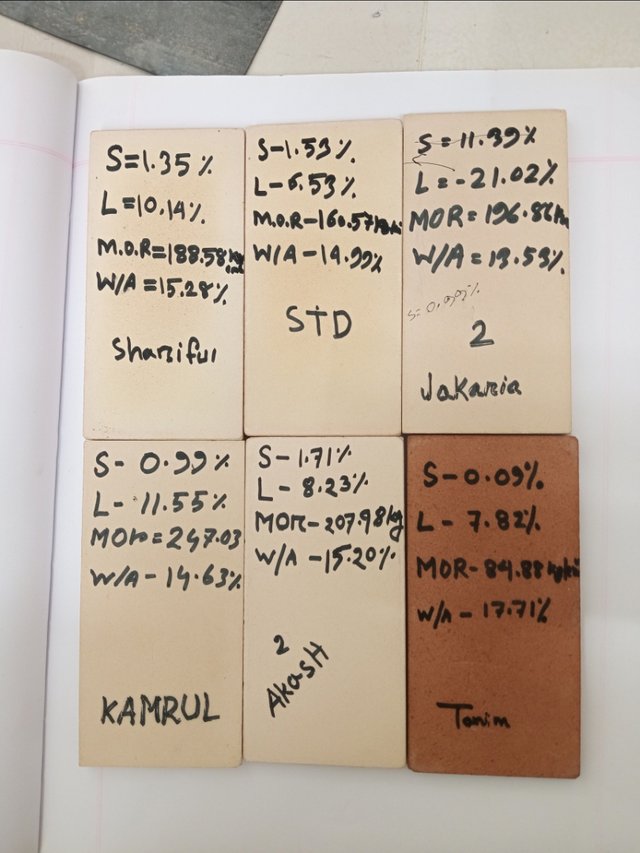 S=1.35%
L=10.14%
M.O.R=188.58kg/cm2
W/A=15.28%
Shariful
S-1.53%
L-6.53%
M.O.R-160.57
W/A-14.99%
STD
S=11.39%
L=-21.02%
MOR=196.86
W/A=13.53%
S=0.99%
2
Jakaria
S-0.99%
L-11.55%
MOR=247.03
W/A-14.63%
KAMRUL
S-1.71%
L-8.23%
MOR-207.98kg
W/A-15.20%
2
AkasH
S-0.09%
L-7.82%
MOR-84.88
W/A-17.71%
Tanim